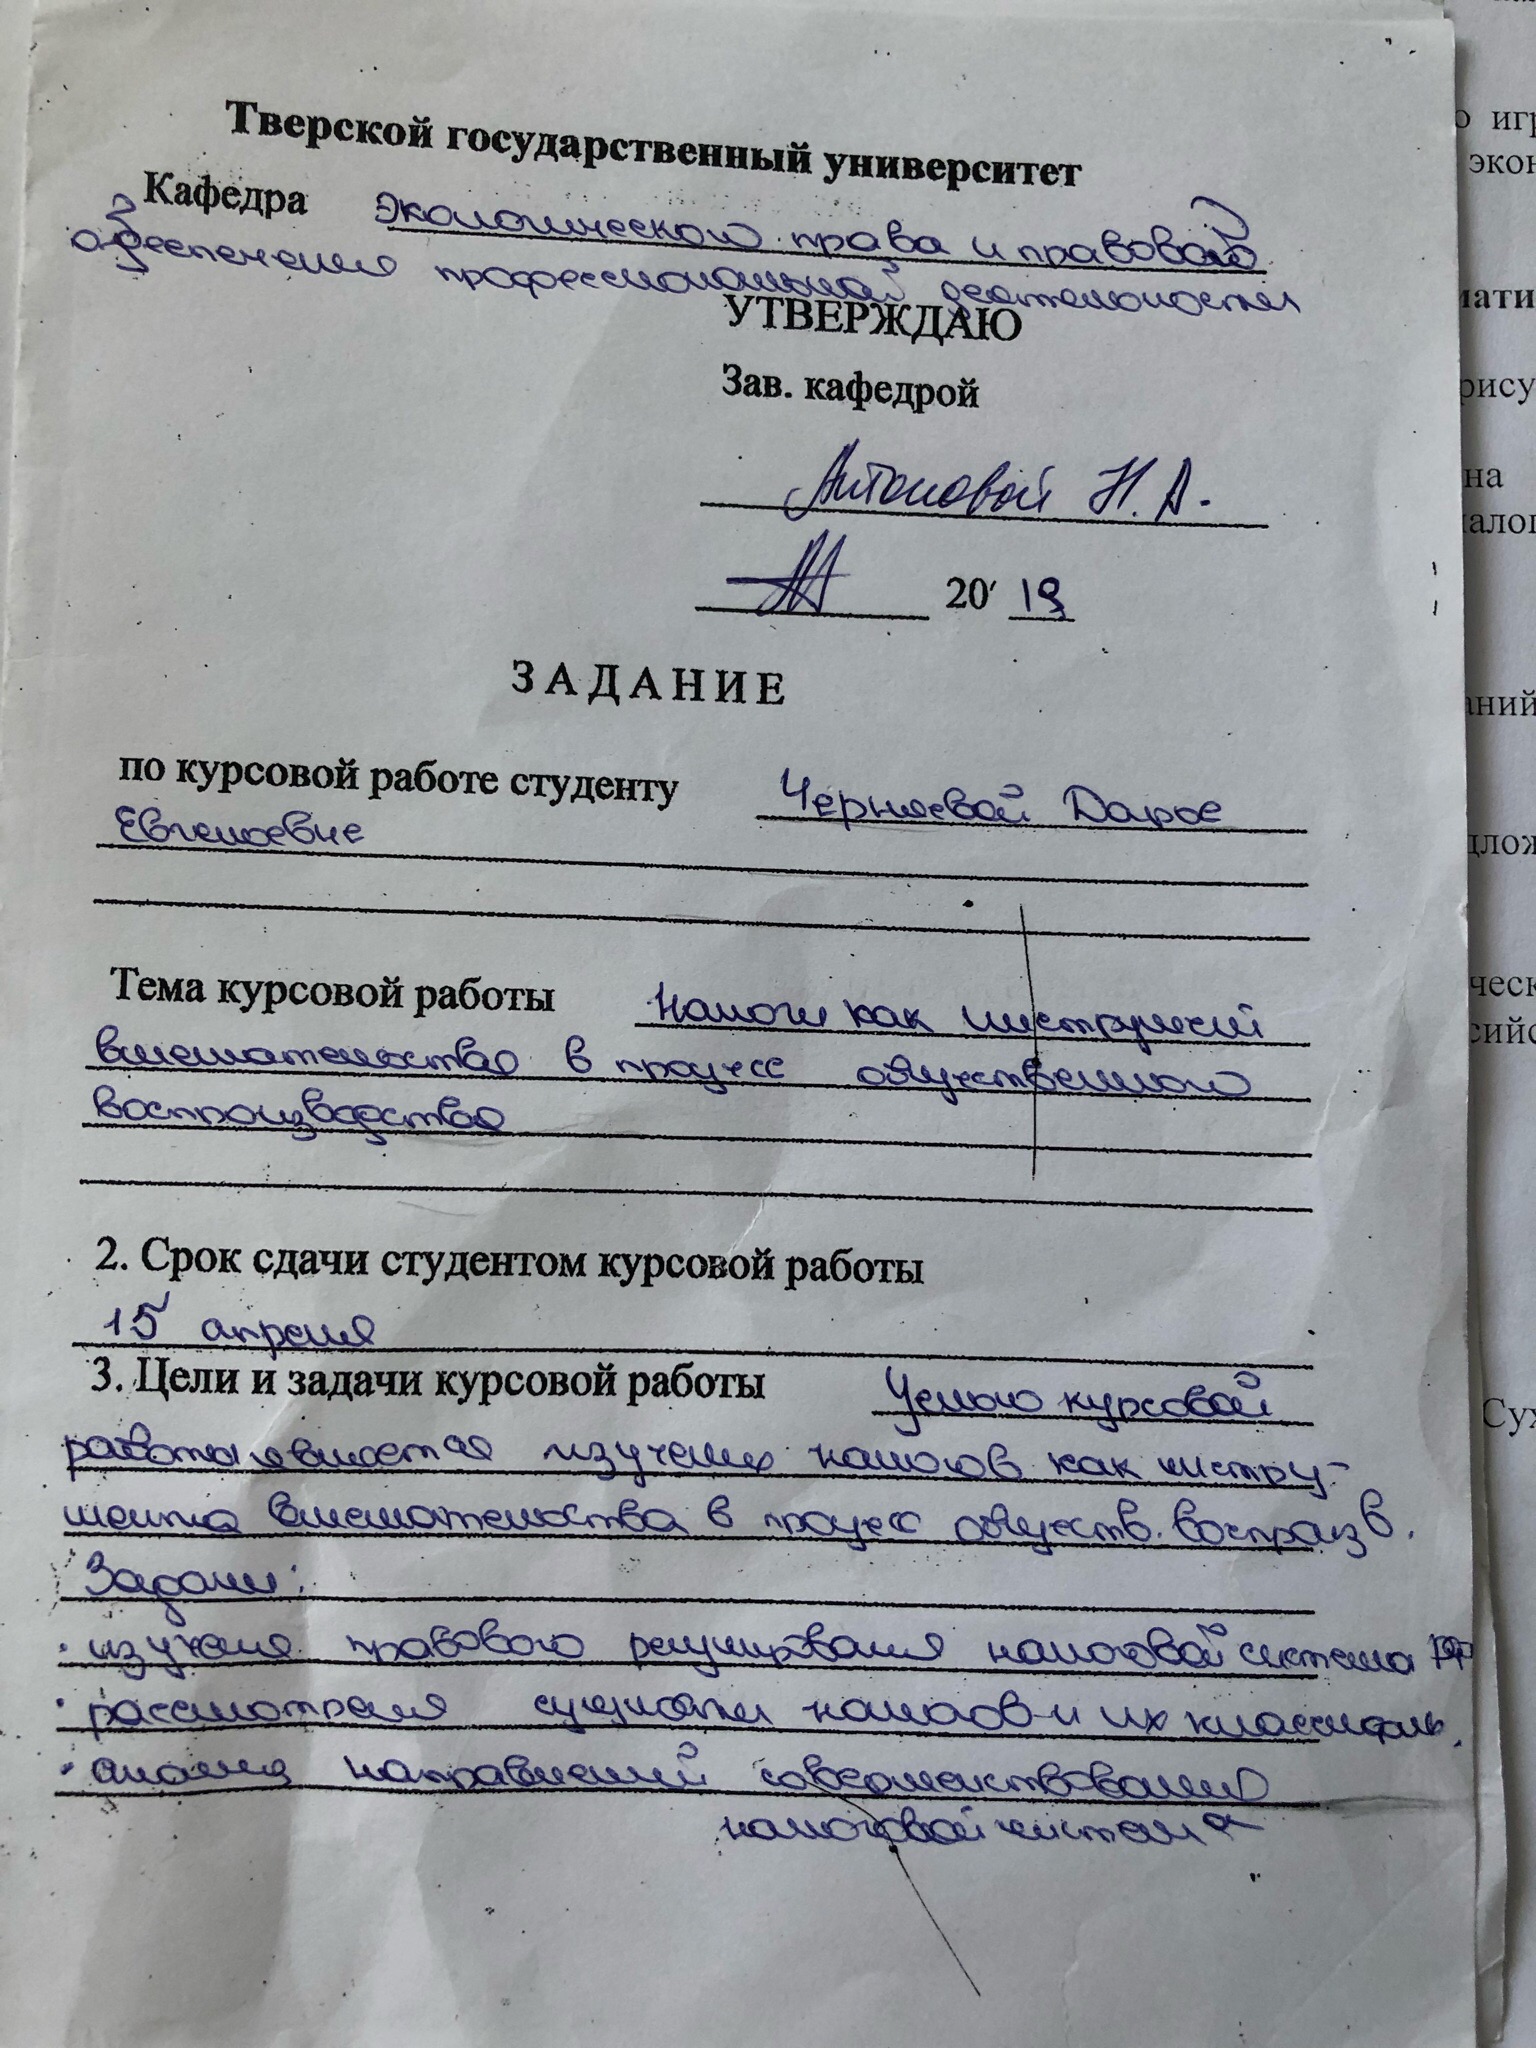 Тверской государственный университет
Кафедра экологического права и правового
обеспечения профессиональной деятельности
УТВЕРЖДАЮ
Зав. кафедрой
Антоновой Н. А.
20 19
ЗАДАНИЕ
по курсовой работе студенту Черняевой Дарье
Евгеньевне
Тема курсовой работы Налоги как инструмент
вмешательства в процесс общественного
воспроизводства
2. Срок сдачи студентом курсовой работы
15 апреля
3. Цели и задачи курсовой работы Целью курсовой
работы является изучение налогов как инстру-
мента вмешательства в процесс обществ. воспроизв.
Задачи:
· изучения правового регулирования налоговой системы РФ
· рассмотрения сущности налогов и их классифик.
· анализа направлений совершенствования
налоговой системы
о игр
экон
мати
рису
на
налог
аний
длож
ческ
сийс
Сух